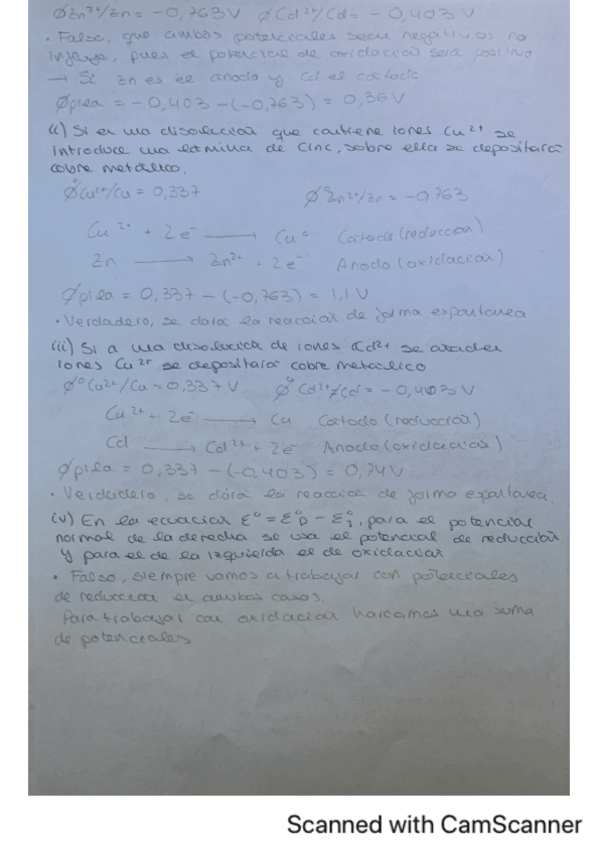 ø Zn²⁺/Zn = -0,763 V ø Cd²⁺/Cd = - 0,403 V
· Falso, que ambos potenciales sean negativos no
influye, pues el potencial de oxidación será positivo
→ Si Zn es el ánodo y Cd el cátodo
ø pila = -0,403 - (-0,763) = 0,36 V
(ii) Si en una disolución que contiene iones Cu²⁺ se
introduce una lámina de Cinc, sobre ella se depositará
cobre metálico.
ø°Cu²⁺/Cu = 0,337 ø°Zn²⁺/Zn = -0,763
Cu²⁺ + 2e⁻ → Cu° Cátodo (reducción)
Zn → Zn²⁺ + 2e⁻ Ánodo (oxidación)
ø pila = 0,337 - (-0,763) = 1,1 V
· Verdadero, se dará la reacción de forma espontánea
(iii) Si a una disolución de iones Cd²⁺ se añaden
iones Cu²⁺ se depositará cobre metálico
ø°Cu²⁺/Cu = 0,337 V ø°Cd²⁺/Cd = - 0,403 V
Cu²⁺ + 2e⁻ → Cu Cátodo (reducción)
Cd → Cd²⁺ + 2e⁻ Ánodo (oxidación)
ø pila = 0,337 - (-0,403) = 0,74 V
· Verdadero, se dará la reacción de forma espontánea.
(v) En la ecuación Ɛ° = Ɛ°D - Ɛ°I, para el potencial
normal de la derecha se usa el potencial de reducción
y para el de la izquierda el de oxidación
· Falso, siempre vamos a trabajar con potenciales
de reducción en ambos casos.
Para trabajar con oxidación haríamos una suma
de potenciales
Scanned with CamScanner